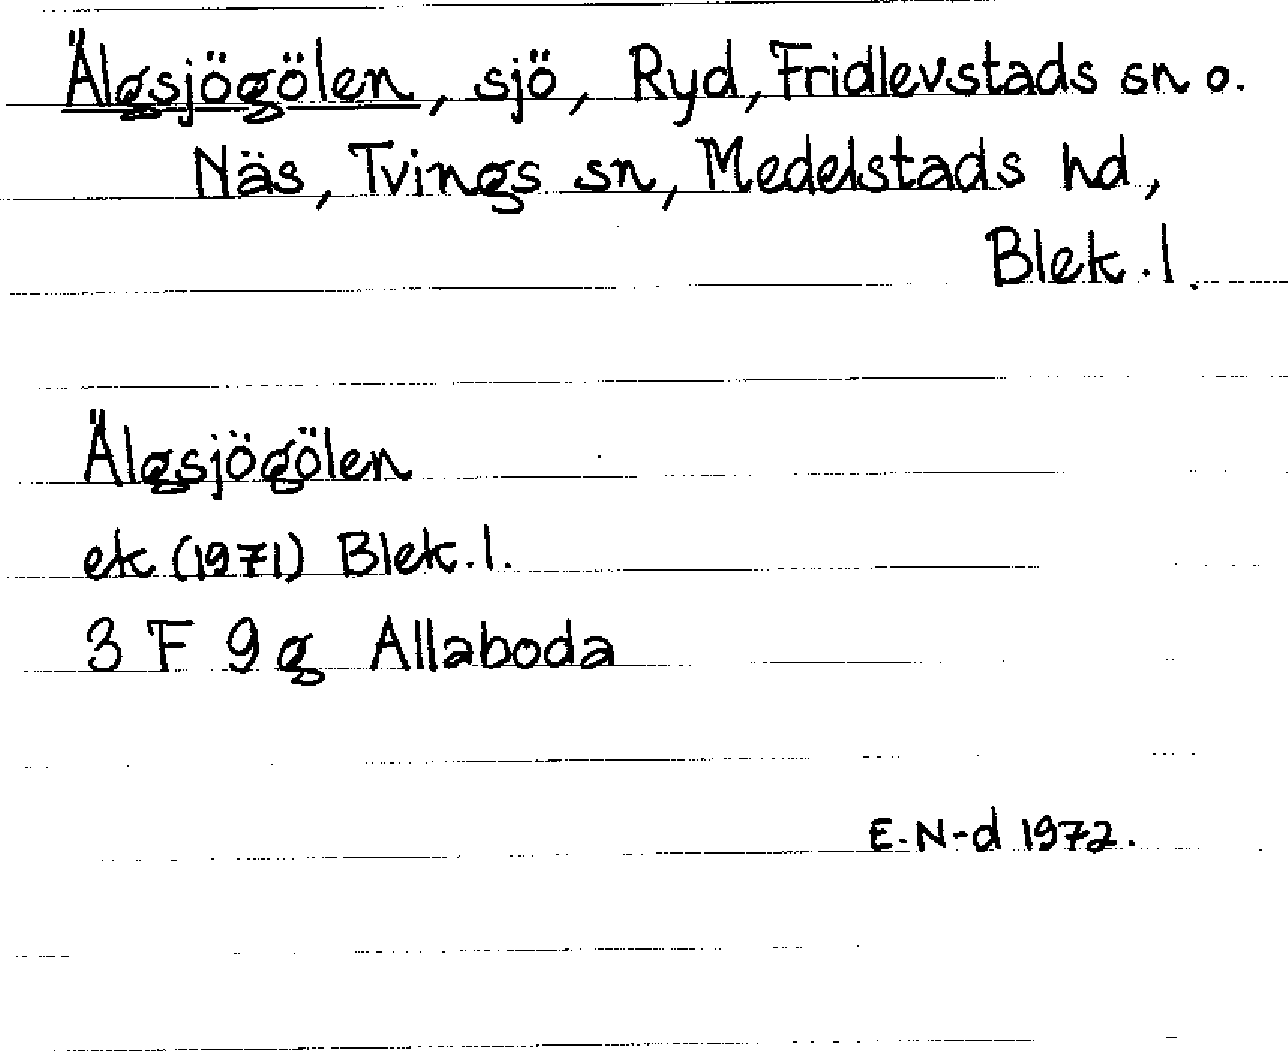 Älgsjögölen, sjö, Ryd, Fridlevstads sn o.
Näs, Tvings sn, Medelstads hd,
Blek. l.
Älgsjögölen
ek (1971) Blek. l.
3 F 9 g Allaboda
E. N-d 1972.